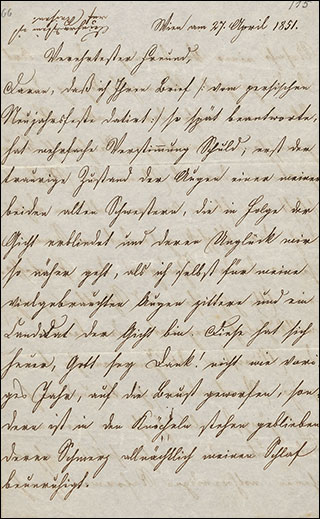 66
135
Wien am 27. April 1851.
Verehrtester Freund,
Daran, daß ich Ihren Brief /: vom persischen
Neujahrsfeste datirt :/ so spät beantworte,
hat mehrfache Verstimmung Schuld, erst der
traurige Zustand der Augen einer meiner
beiden alten Schwestern, die in Folge der
Gicht erblindet und deren Unglück mir
so näher geht, als ich selbst für meine
vielgebrauchten Augen zittere und ein
Candidat der Gicht bin. Diese hat sich
heuer, Gott sey Dank! nicht wie vori-
ges Jahr, auf die Brust geworfen, son-
dern ist in den Knöcheln stehen geblieben
deren Schmerz allnächtlich meinen Schlaf
beunruhigt.